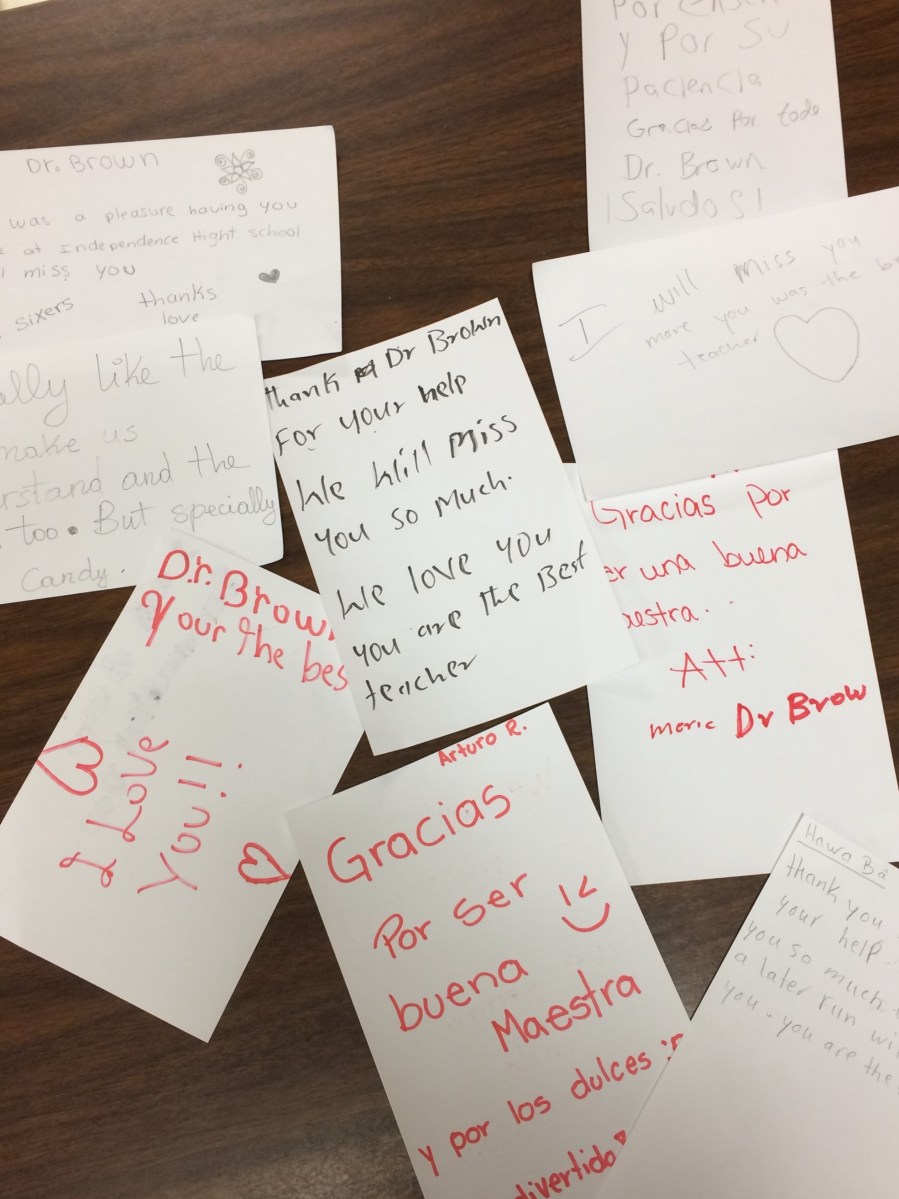 Dr. Brown
was a pleasure having you
at Independence Hight school
miss you
sixers
thanks
love
ally like the
make us
rstand and the
too. But specially
Candy.
Por
y Por su
Paciencia
Gracias Por todo
Dr. Brown
¡Saludos!
I will miss you
more you was the b
teacher
thank Dr Brown
For your help
We will miss
you so much.
We love you
you are the Best
teacher
Gracias por
er una buena
aestra..
Att:
Dr Brow
D.r. Brow
Your the bes
I Love
You!!
Arturo R.
Gracias
Por ser
buena
Maestra
y por los dulces :P
divertido
Hawa Ba
thank you
your help.
you so much.
a later run wi
you. you are the